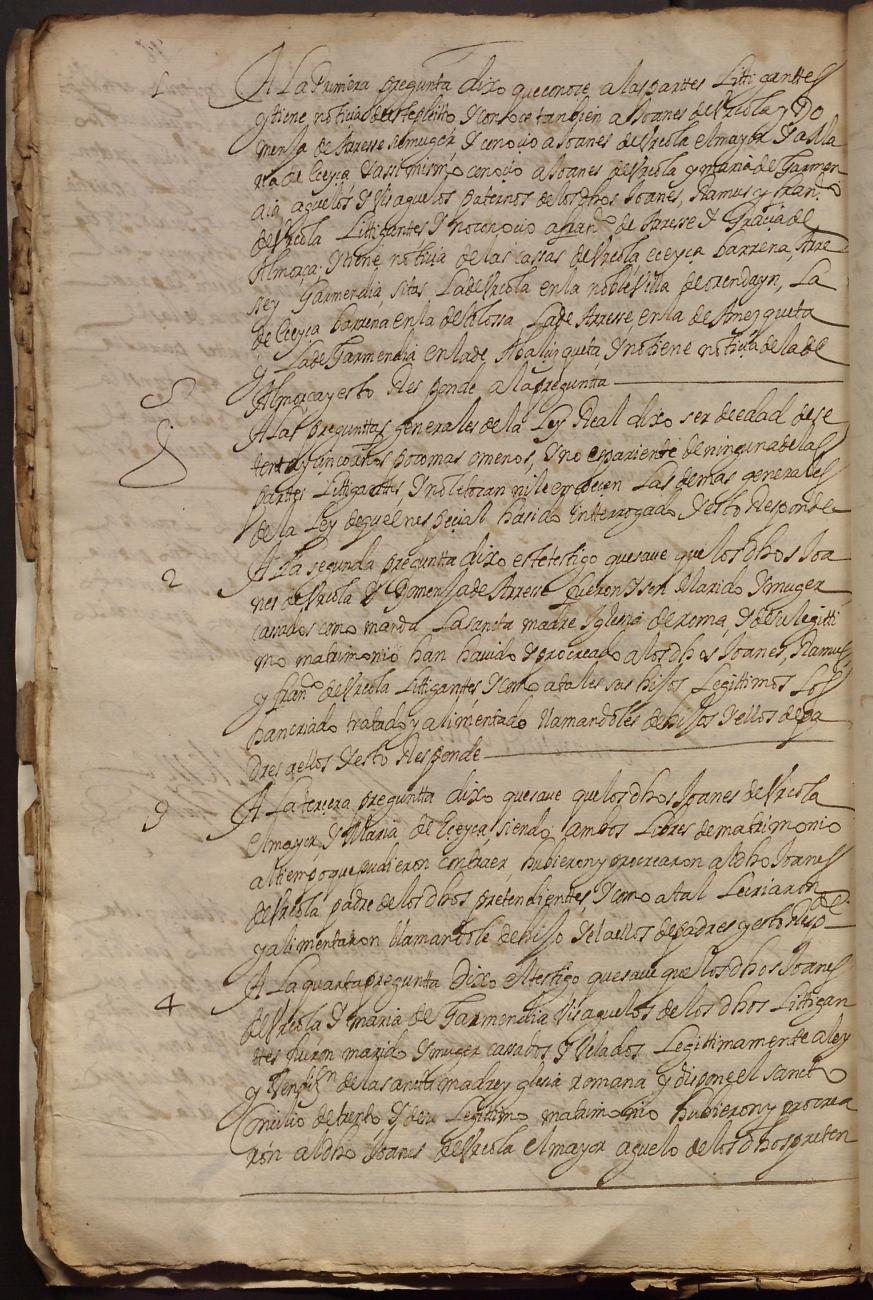 1 A La Primera pregunta dixo que conoce a las parttes Littigantes
y tiene noticia deste pleitto y conoce tambien a Joanes de Vrcola y Do
mensa de Arresse su muger y conocio a Joanes de Vrcola el mayor y a Ma
ria de Eceyça y assimismo conocio a Joanes de Vrcola y maria de Garmen
dia aguelos y Visaguelos paternos de los dhos Joanes, Ramus y fran.co
de Vrcola Littigantes y no conocio a fran.co de Arresse y Gracia de
Almorça, y tiene noticia de las cassas de Vrcola, eceyça barrena, Arre
se y Garmendia, sitas La de Vrcola en la noble Villa de orendayn, La
de Eceyça barrena en la de tolossa, La de Arresse, en la de Amezqueta
y La de Garmendia en la de Abalizqueta, y no tiene noticia de la de
Almorça y esto Responde a la pregunta
A Las preguntas generales de la Ley Real dixo ser de edad de se
tenta y cinco años poco mas o menos, y no es pariente de ninguna de las
partes Littigantes, y no le tocan ni le empecen Las demas generales
de la Ley de que en especial ha sido Interrogado y esto Responde
2 A La segunda pregunta dixo este testigo que save que los dhos Joa
nes de Vrcola y Domensa de Arresse fueron y son Marido y muger
casados como manda La santa madre Iglesia de roma, y de su legitti
mo matrimonio han havido y procreado a los dhos Joanes, Ramus,
y fran.co de Vrcola Littigantes y como a tales sus hijos Legittimos Los
han criado tratado y alimentado llamandoles de hijos y ellos de pa
dres a ellos y esto Responde
3 A La tercera pregunta dixo que save que los dhos Joanes de Vrcola
el mayor, y Maria de Eceyça siendo ambos Libres de matrimonio
al tiempo que pudieron contraer hubieron y procrearon al dho Joanes
de Vrcola padre de los dhos pretendientes y como a tal Le criaron
y alimentaron llamandole de hijo y el a ellos de padres y esto Respde
4 A La quarta pregunta Dixo el testigo que save que los dhos Joanes
de Vrcola y maria de Garmendia Visaguelos de los dhos Littigan
ttes fueron marido y muger cassados y Velados Legittimamente a ley
y Vendiz.n de la sancta madre yglesia romana y dispone el sancto
Concilio de trento y de su Legittimo matrimonio hubieron y procrea
ron al dho Joanes de Vrcola el mayor aguelo de los dhos preten